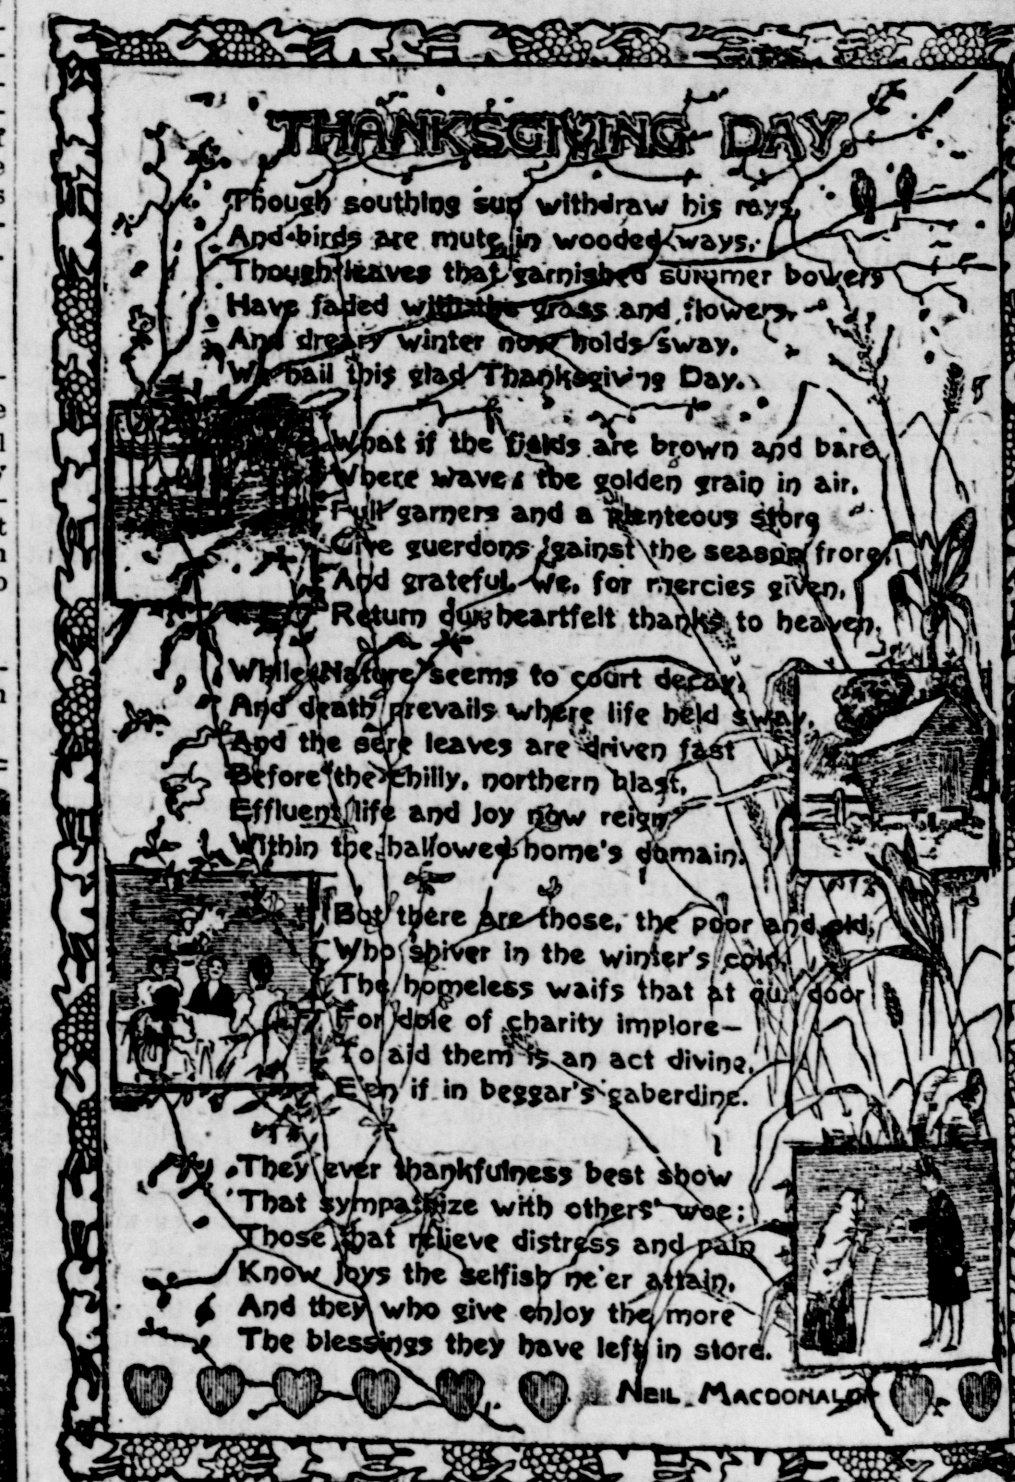 THANKSGIVING DAY.
Though southing sun withdraw his rays,
And birds are mute in wooded ways,
Though leaves that garnished summer bowers
Have faded with the grass and flowers,
And dreary winter now holds sway,
We hail this glad Thanksgiving Day.
What if the fields are brown and bare
Where waved the golden grain in air,
Full garners and a plenteous store
Give guerdons 'gainst the season frore,
And grateful, we, for mercies given,
Return our heartfelt thanks to heaven.
While Nature seems to court decay,
And death prevails where life held sway,
And the sere leaves are driven fast
Before the chilly, northern blast,
Effluent life and joy now reign
Within the hallowed home's domain.
But there are those, the poor and old,
Who shiver in the winter's cold,
The homeless waifs that at our door
For dole of charity implore—
To aid them is an act divine,
E'en if in beggar's gaberdine.
They ever thankfulness best show
That sympathize with others' woe;
Those that relieve distress and pain
Know joys the selfish ne'er attain,
And they who give enjoy the more
The blessings they have left in store.
NEIL MACDONALD